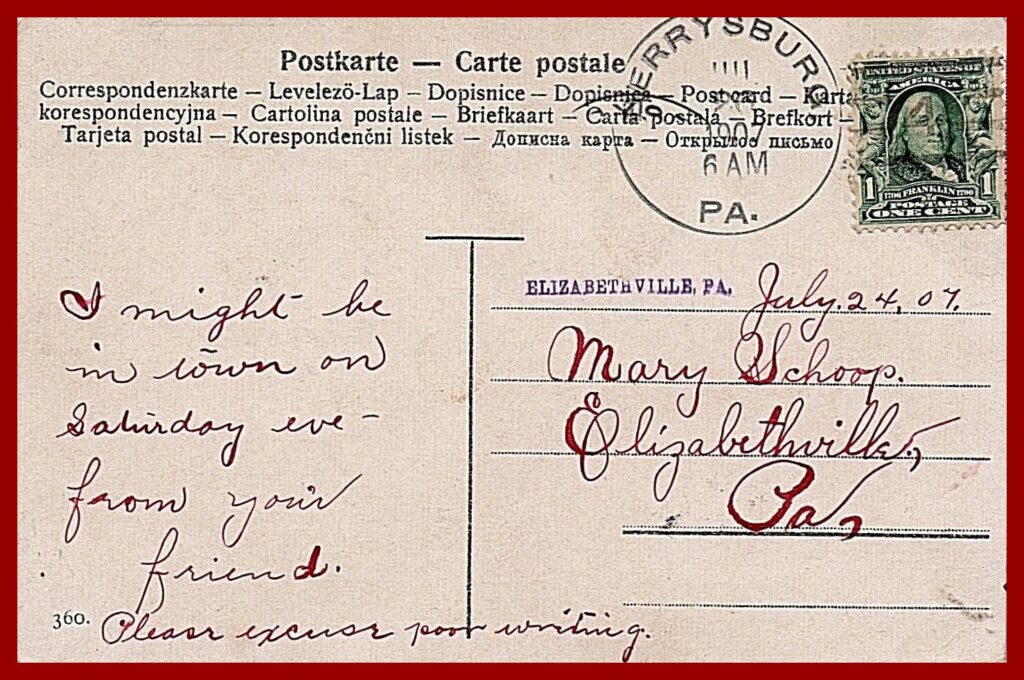 Postkarte — Carte postale
Correspondenzkarte – Levelezö-Lap – Dopisnice – Dopisnica – Post card – Karta
korespondencyjna – Cartolina postale – Briefkaart – Carta postala – Brefkort –
Tarjeta postal – Korespondenčni listek – Дописна карта – Открытое письмо
BERRYSBURG
1907
6 AM
PA.
UNITED STATES OF
AMERICA
1 1706 FRANKLIN 1790 1
POSTAGE
ONE CENT
ELIZABETHVILLE, PA. July. 24, 07.
Mary Schoop.
Elizabethville,
Pa,
I might be
in town on
Saturday eve –
from your
friend.
360.
Please excuse poor writing.